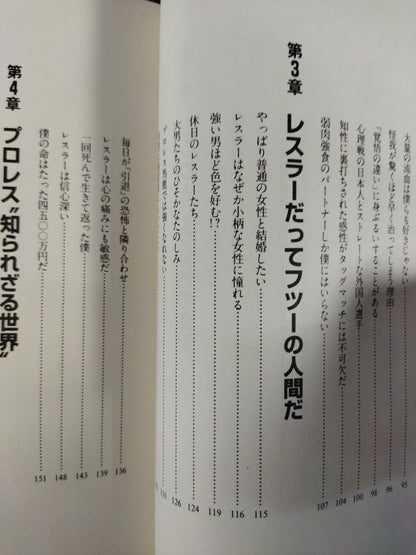 大量の流血は僕らも好きじゃない 95
怪我が驚くほど早く治ってしまう理由 96
「覚悟の違い」に身ぶるいすることがある 98
心理戦の日本人とストレートな外国人選手 100
知性に裏打ちされた感性がタッグマッチには不可欠だ 104
弱肉強食のパートナーしか僕にはいらない 107
第3章 レスラーだってフツーの人間だ
やっぱり普通の女性と結婚したい 115
レスラーはなぜか小柄な女性に憧れる 116
強い男ほど色を好む!? 119
休日のレスラーたち 124
大男たちのひそかなたのしみ 126
プロレス馬鹿では強くなれない 131
毎日が「引退」の恐怖と隣り合わせ 136
レスラーは心の痛みにも敏感だ 139
一回死んで生きて返った僕 143
レスラーは信心深い 148
僕の命はたった四五〇〇万円だ 151
第4章 プロレス〝知られざる世界〟